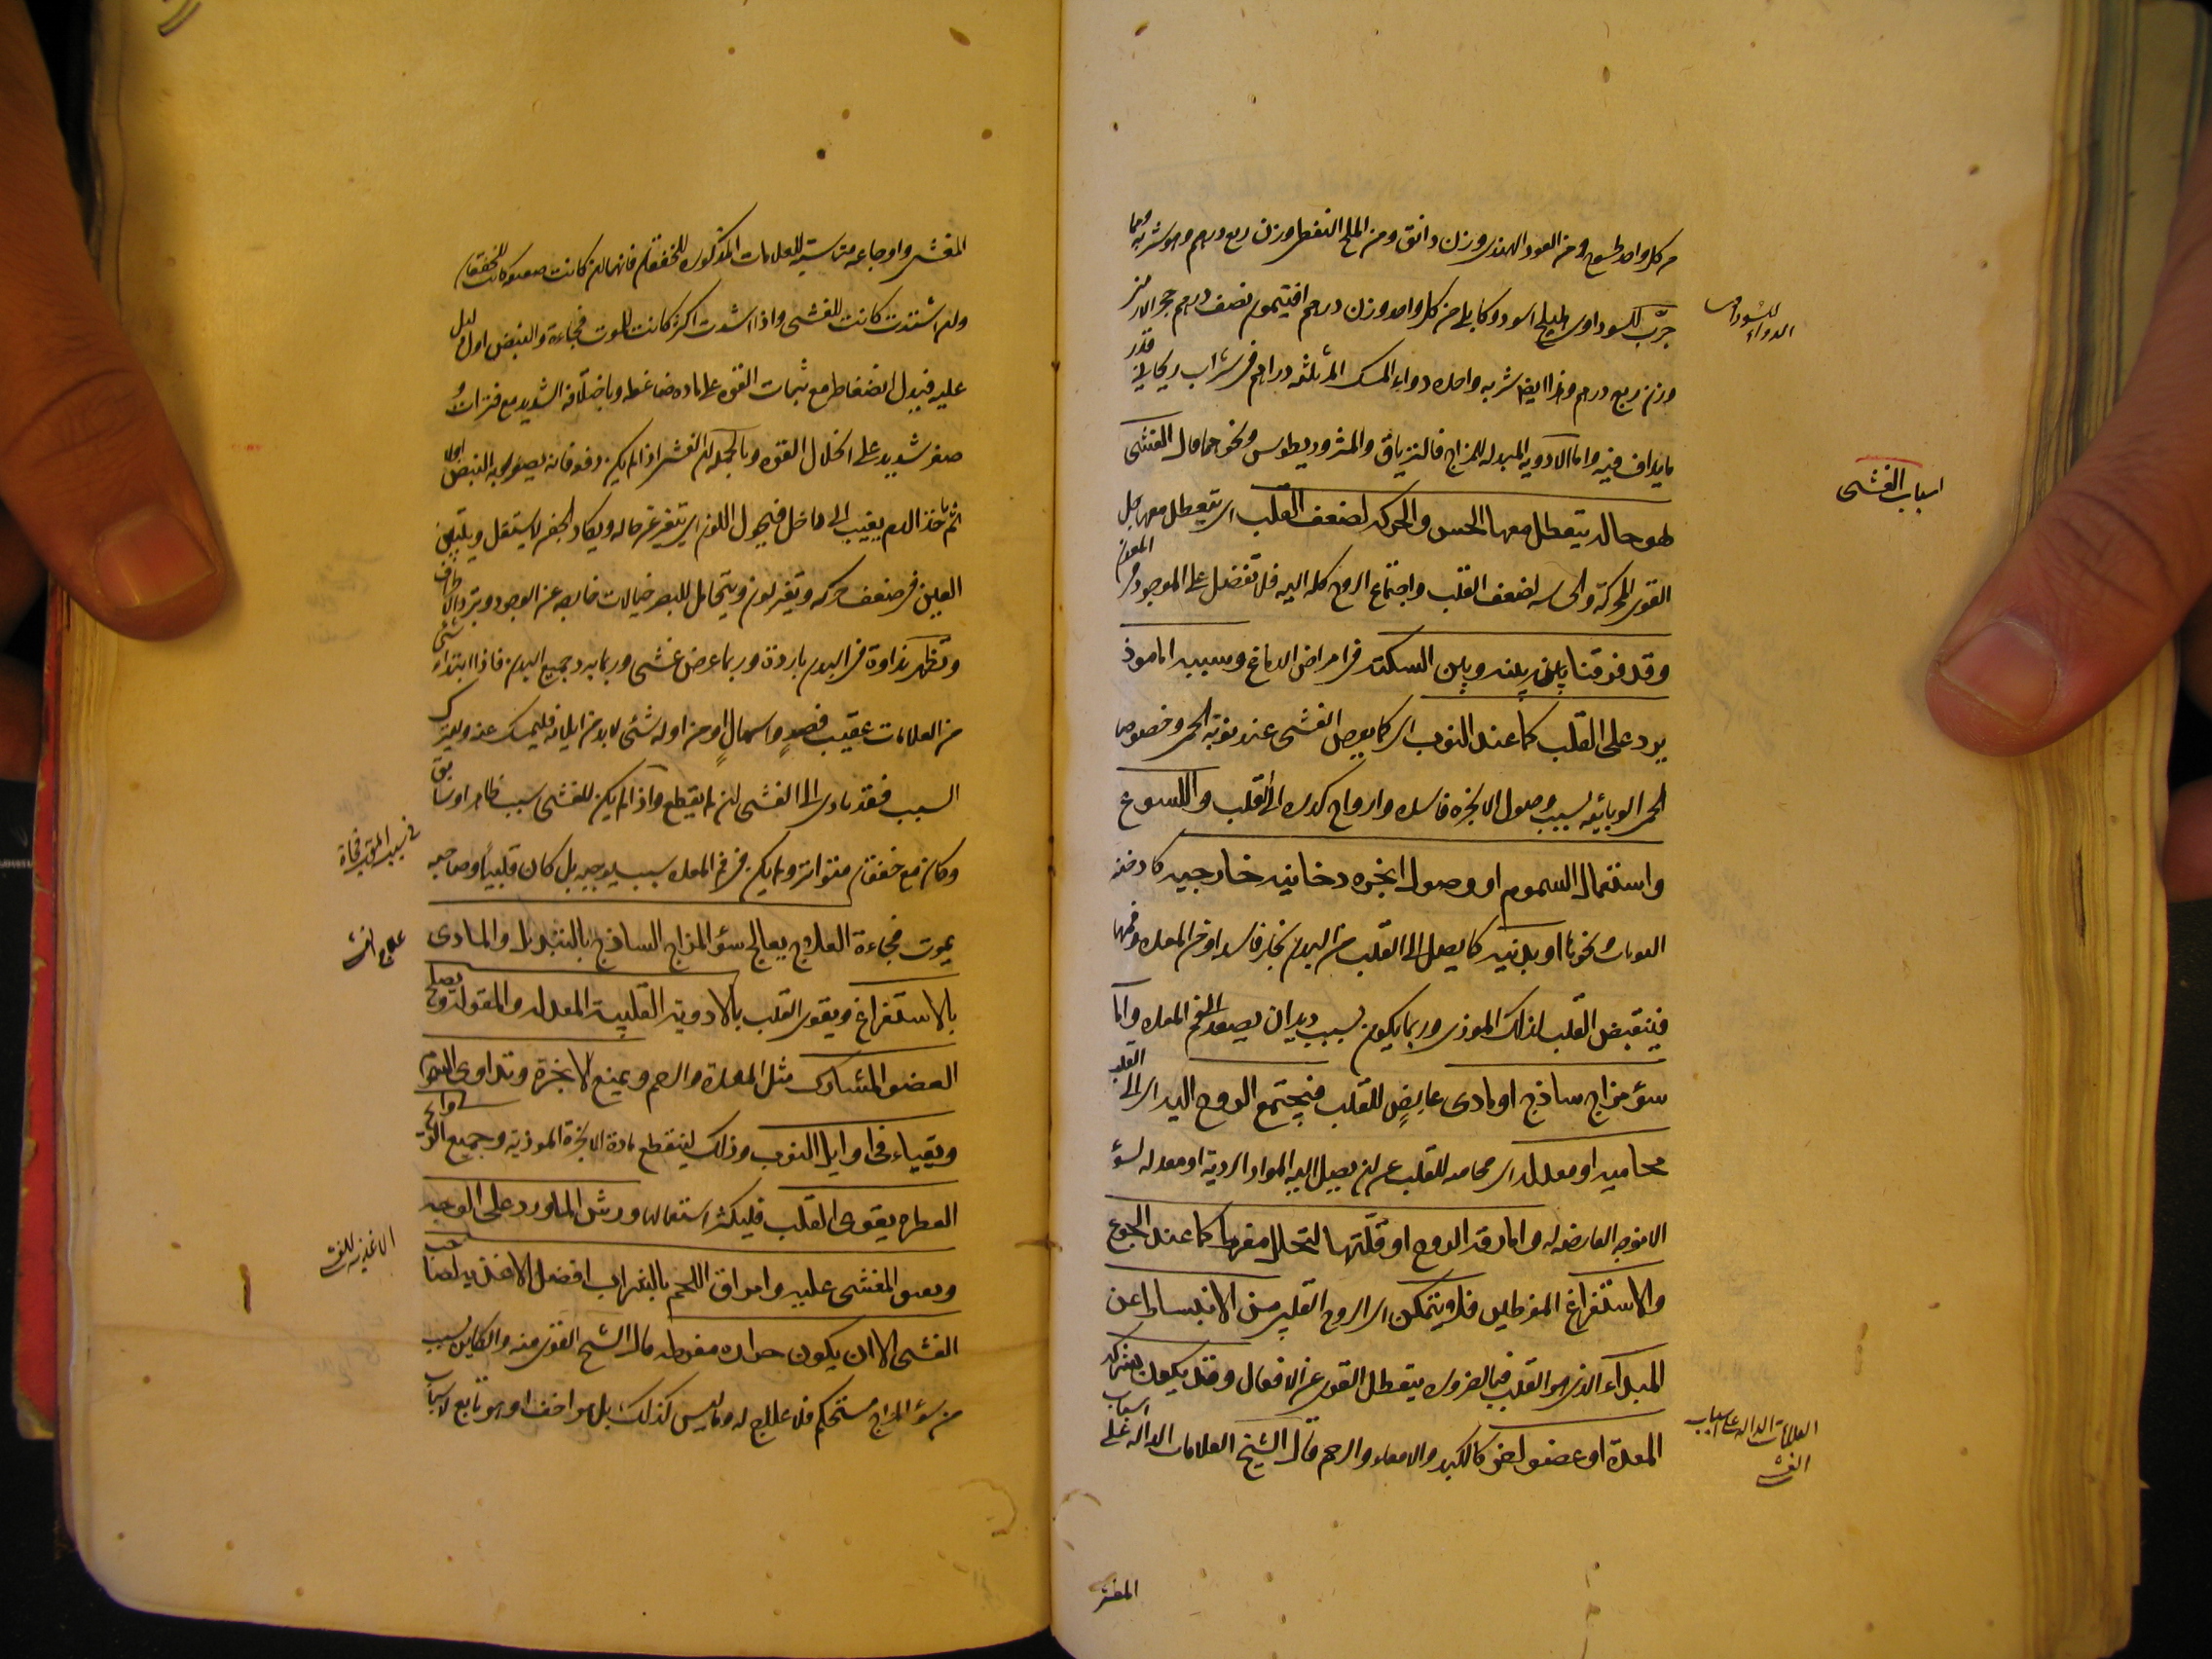 من كل واحد ومن العود الهندى وزن دانق ومن الملح النفطى وزن ربع درهم وهو شربة
جرّب للسوداوى هليلج اسود وكابلى من كل واحد وزن درهم افتيمون نصف درهم حجر الارمنى
وزن ربع درهم وهذا ايضا شربة واحده دواء المسك المر ثلثه دراهم فى شراب ريحانى قدر
ما يداف فيه واما الادويه المبدله للمزاج فالترياق والمثروديطوس ونحوهما قال الغشى
هو حاله يتعطل معها الحس والحركه لضعف القلب اى يتعطل معها جل
القوى المحركة والحساسه لضعف القلب واجتماع الروح كله اليه فلا تفضل على الموجود فى المعدن
وقد فرقنا بينه وبين السكته فى امراض الدماغ وسببه اما موذ
يرد على القلب كما عند النوب اى كما يعرض الغشى عند نوبة الحمى وخصوصا
الحمى الوبائيه بسبب وصول الابخره فاسده وارواح كدره الى القلب واللسوع
واستعمال السموم او وصول ابخره دخانيه خارجيه كادخنه
ونحوها او بدنيه كما يصل الى القلب من البدن بخار فاسد او من المعده ونحوها
فينقبض القلب لذلك الموذى وربما يكون بسبب ديدان يصعد الى فم المعده واما
سؤ مزاج ساذج او مادى عارض للقلب فيجتمع الروح اليه اى الى القلب
محاميه او معدله اى محاميه للقلب عن ان يصل اليه المواد الرديه او معدله لسؤ
المزاج العارض له واما رقه الروح او قلتها لتحلل مفرط كما عند الجوع
والاستفراغ المفرطين فلا يتمكن اى الروح القلبى من الانبساط عن
المبداء الذى هو القلب فبالضروره يتعطل القوى عن الافعال وقد يكون بشركه
المعدة او عضو اخر كالكبد والامعاء والرحم قال الشيخ العلامات الداله على اسباب
المغشى
الدواء للسوداوى
اسباب الغشى
العلامات الداله على اسباب
الغشى
المغشى واوجاعه مناسبة للعلامات المذكوره للخفقان فانها ان كانت ضعيفه كانت للخفقان
وان اشتدت كانت للغشى واذا اشتدت اكثر كانت للموت فجاءة والنبض اول دليل
عليه فيدل انضغاطه مع ثبات القوه على ماده ضاغطه وباختلافه الشديد مع فترات و
صغر شديد على انحلال القوه وبالجملة ان الغشى اذا لم يكن دفعه فانه يصغر به النبض اولا
ثم ياخذ الدم يغيب الى داخل فيحول اللون اى يتغير عن حاله ويكاد الجفن لا يستقل ويتبين
العين فى ضعف حركه وتغير لون ويتخايل للبصر خيالات خارجه عن الوجود وتبرد الاطراف
وتظهر نداوة فى البدن باردة وربما عرض غشى وربما برد جميع البدن فاذا ابتداء شئ
من العلامات عقيب فصد واسهال او مزاوله شئ لابد من ايلامه فليمسك عنه وليترك
السبب فقد يادى الى الغشى ان لم يقطع واذا لم يكن للغشى سبب ظاهر او سابق
وكان مع خفقان متواتر ولم يكن فى فم المعده سبب يوجبه بل كان قلبيا وصاحبه
يموت فجاءة العلاج يعالج سؤ المزاج الساذج بالتبديل والمادى
بالاستفراغ ويقوى القلب بالادوية القلبية المعدله والمقوله ويصلح
العضو المشارك مثل المعدة والرحم ويمنع الابخرة وتداوى القروح
ويقياء فى اوايل النوب وذلك لينقطع مادة الابخرة الموذية وجميع الروائح
العطره يقوى القلب فليكثر استعمالها ورش الماورد على الوجه
المغشى عليه وامراق اللحم بالشراب افضل الاغذيه لصاحب
الغشى الا ان يكون حراره مفرطه قال الشيخ القوى منه والكاين بسبب
من سؤ المزاج مستحكم فلا علاج له وما ليس كذلك بل هو اخف او هو تابع لاسباب
علاج الغشى
الاغذيه للغشى